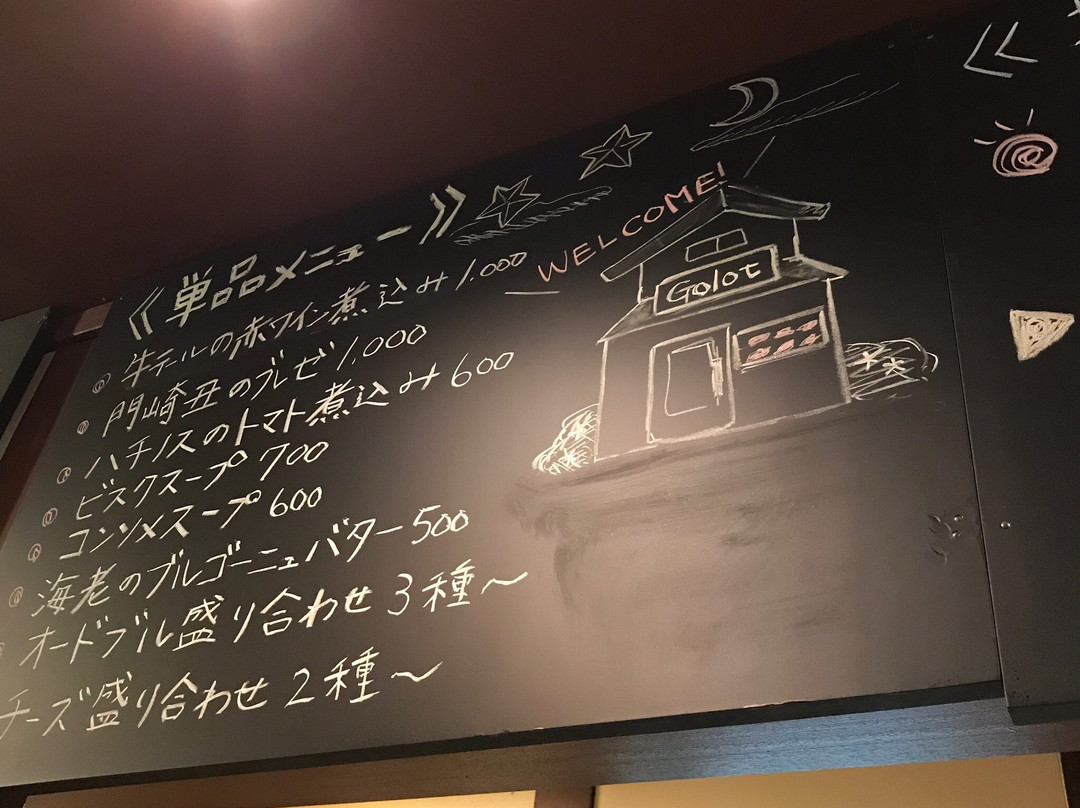 《単品メニュー》
牛テールの赤ワイン煮込み 1.000
門崎丑のブレゼ 1.000
ハチノスのトマト煮込み 600
ビスクスープ 700
コンソメスープ 600
海老のブルゴーニュバター 500
オードブル盛り合わせ 3種〜
チーズ盛り合わせ 2種〜
WELCOME!
Golot
《